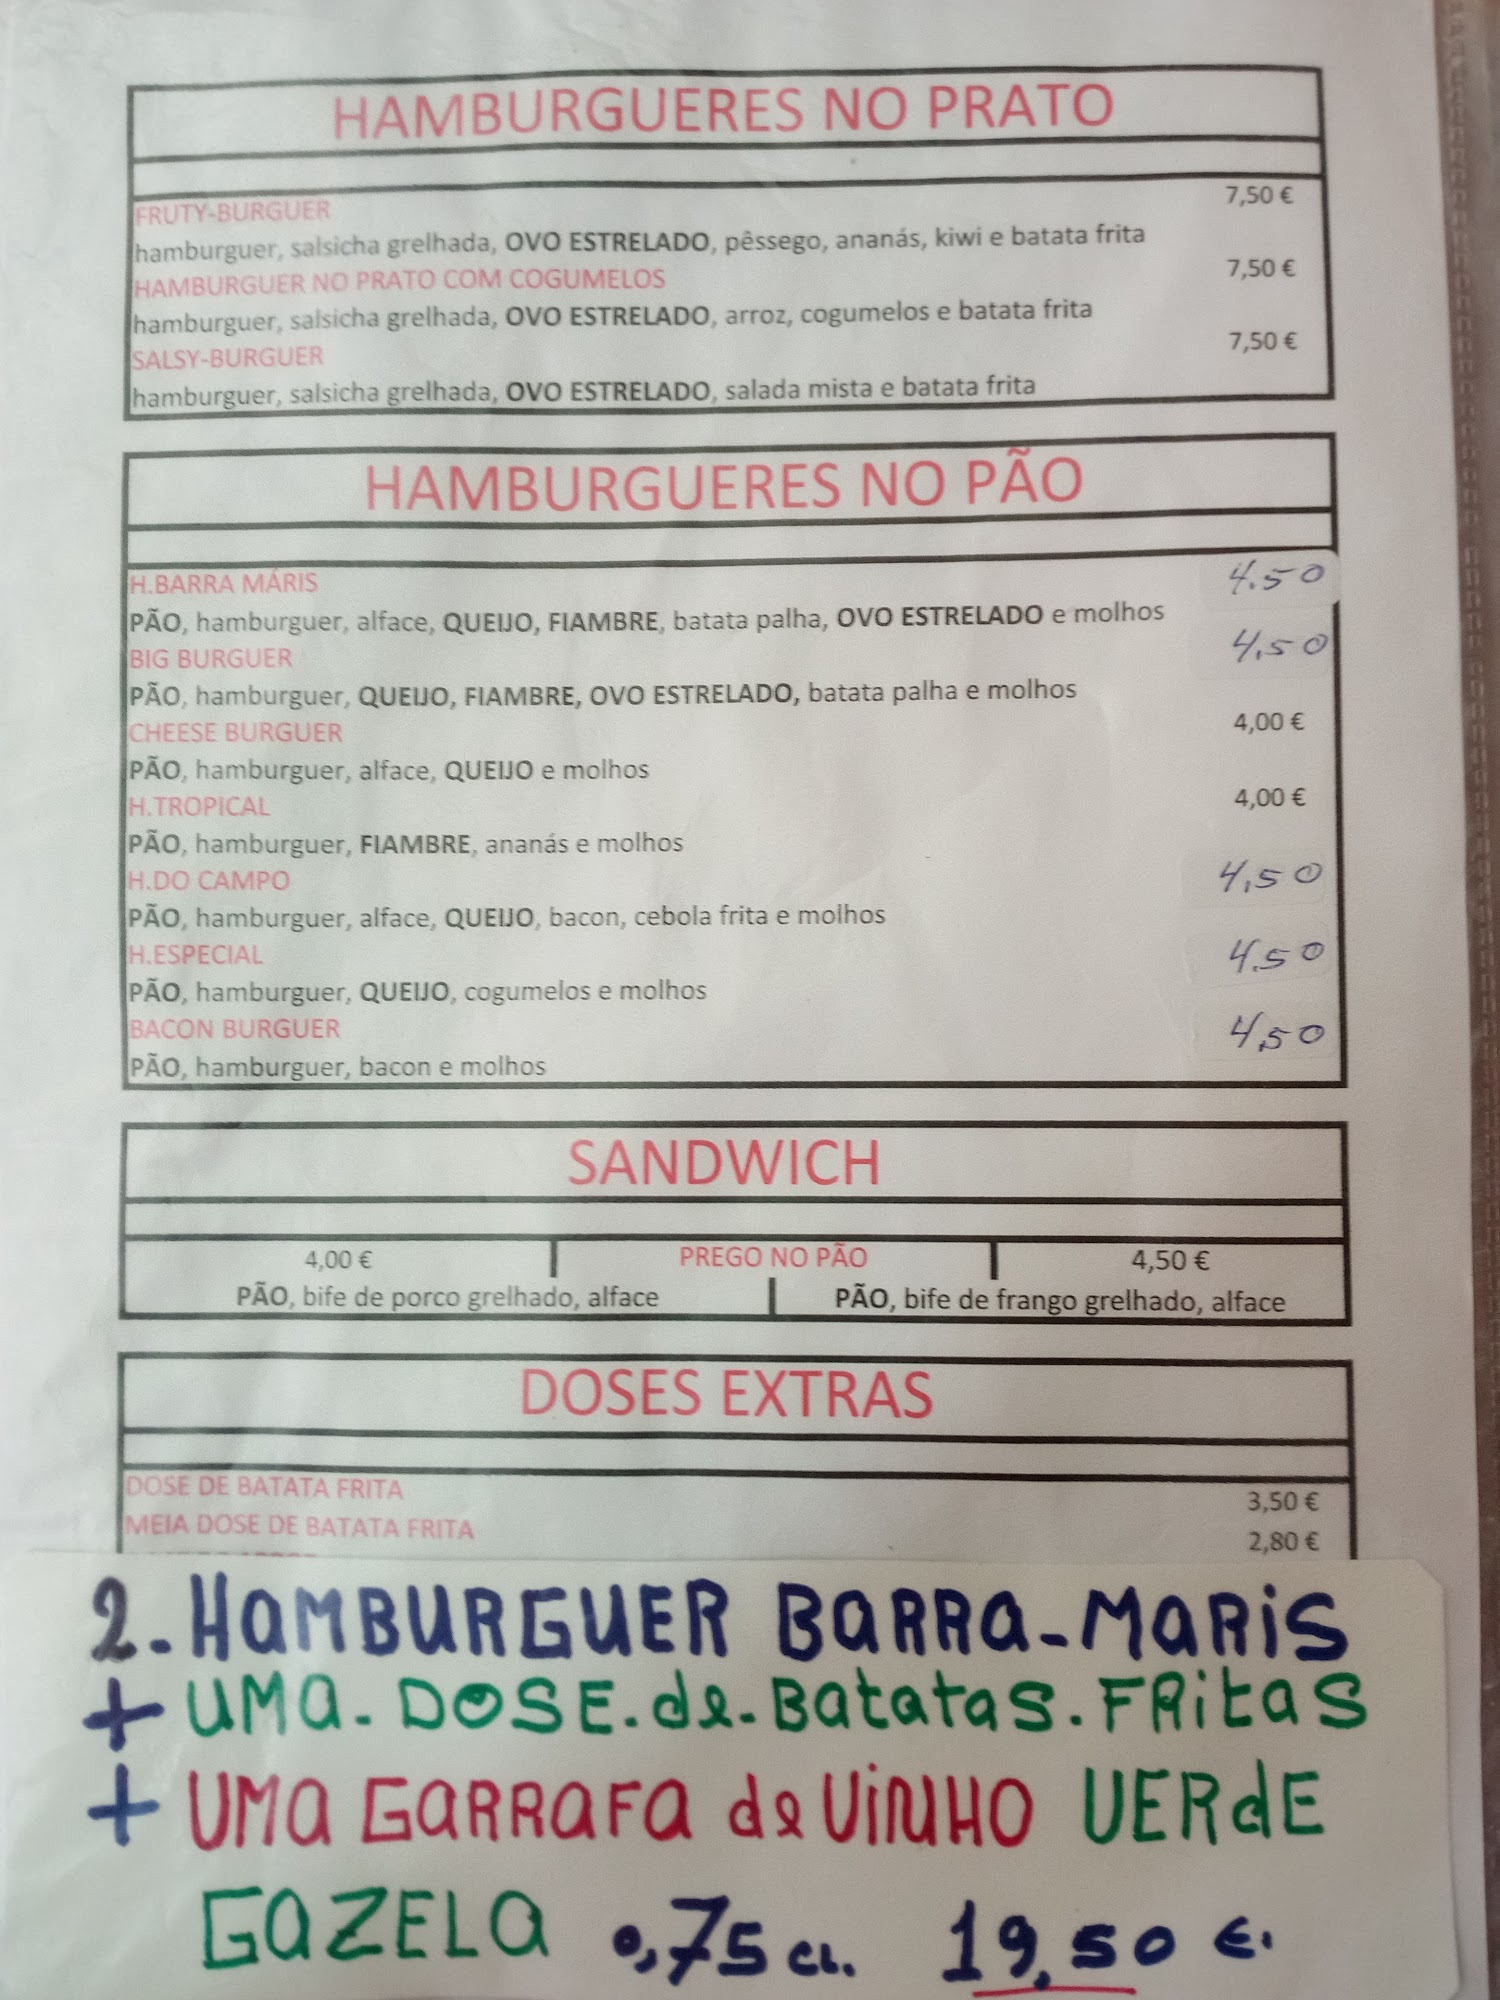 HAMBURGUERES NO PRATO
FRUTY-BURGUER 7,50 €
hamburguer, salsicha grelhada, OVO ESTRELADO, pêssego, ananás, kiwi e batata frita
HAMBURGUER NO PRATO COM COGUMELOS 7,50 €
hamburguer, salsicha grelhada, OVO ESTRELADO, arroz, cogumelos e batata frita
SALSY-BURGUER 7,50 €
hamburguer, salsicha grelhada, OVO ESTRELADO, salada mista e batata frita
HAMBURGUERES NO PÃO
H.BARRA MÁRIS 4.50
PÃO, hamburguer, alface, QUEIJO, FIAMBRE, batata palha, OVO ESTRELADO e molhos
BIG BURGUER 4,50
PÃO, hamburguer, QUEIJO, FIAMBRE, OVO ESTRELADO, batata palha e molhos
CHEESE BURGUER 4,00 €
PÃO, hamburguer, alface, QUEIJO e molhos
H.TROPICAL 4,00 €
PÃO, hamburguer, FIAMBRE, ananás e molhos
H.DO CAMPO 4,50
PÃO, hamburguer, alface, QUEIJO, bacon, cebola frita e molhos
H.ESPECIAL 4.50
PÃO, hamburguer, QUEIJO, cogumelos e molhos
BACON BURGUER 4,50
PÃO, hamburguer, bacon e molhos
SANDWICH
4,00 € PREGO NO PÃO 4,50 €
PÃO, bife de porco grelhado, alface PÃO, bife de frango grelhado, alface
DOSES EXTRAS
DOSE DE BATATA FRITA 3,50 €
MEIA DOSE DE BATATA FRITA 2,80 €
2-HAMBURGUER BARRA-MARiS
+ UMA-DOSE.de-BatatAS.FRitAS
+ UMA GARRAFA de ViNHO VERdE
GAZELA 0,75 CL. 19,50 €.